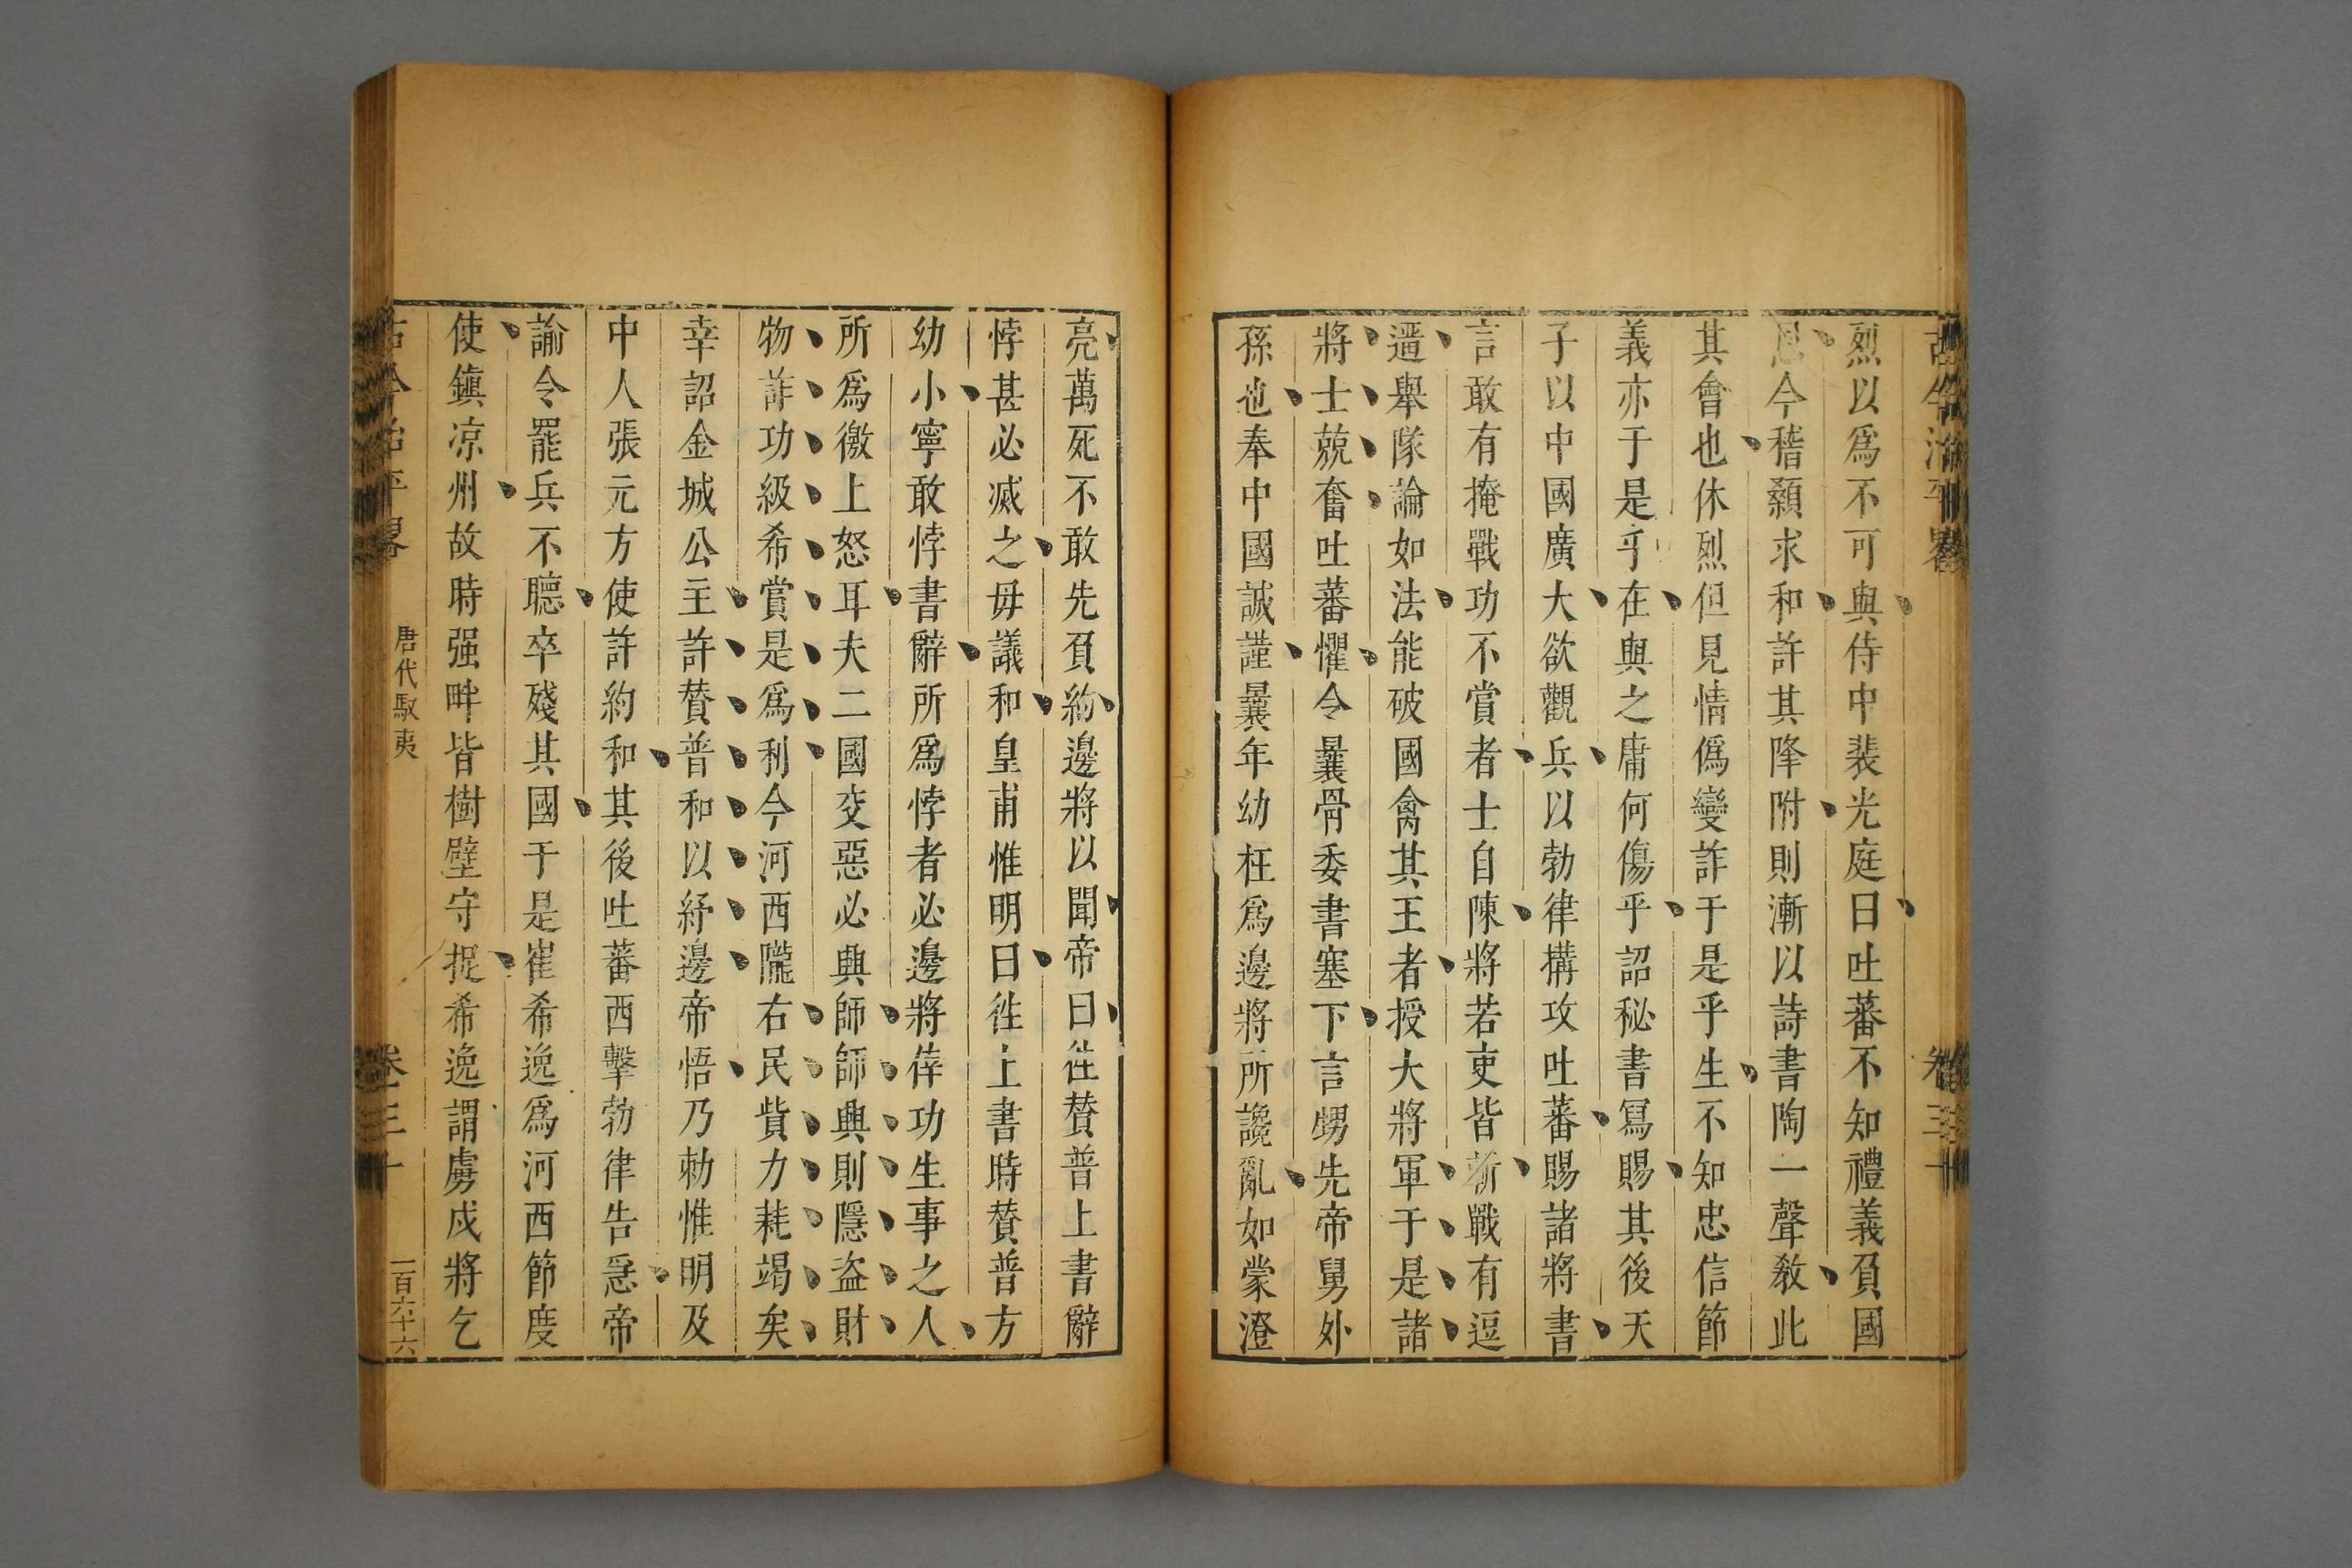 烈以爲不可與侍中裴光庭曰吐蕃不知禮義負國
恩今稽顙求和許其降附則漸以詩書陶一聲敎此
其會也休烈但見情僞變詐于是乎生不知忠信節
義亦于是乎在與之庸何傷乎詔秘書冩賜其後天
子以中國廣大欲觀兵以勃律搆攻吐蕃賜諸將書
言敢有掩戰功不賞者士自陳將若吏皆斬戰有逗
遛舉隊論如法能破國禽其王者授大將軍于是諸
將士兢奮吐蕃懼令曩骨委書塞下言甥先帝舅外
孫也奉中國誠謹曩年幼枉爲邊將所讒亂如蒙澄
亮萬死不敢先負約邊將以聞帝曰徃賛普上書辭
悖甚必滅之毋議和皇甫惟明曰徃上書時賛普方
幼小寧敢悖書辭所爲悖者必邊將倖功生事之人
所爲徼上怒耳夫二國交惡必興師師興則隱盜財
物詐功級希賞是爲利今河西隴右民貲力耗竭矣
幸詔金城公主許賛普和以紓邊帝悟乃勅惟明及
中人張元方使許約和其後吐蕃西擊勃律告急帝
諭令罷兵不聽卒殘其國于是崔希逸爲河西節度
使鎮凉州故時强畔皆樹壁守捉希逸謂虜戍將乞
古今治平畧
唐代馭夷
卷三十
一百六十六